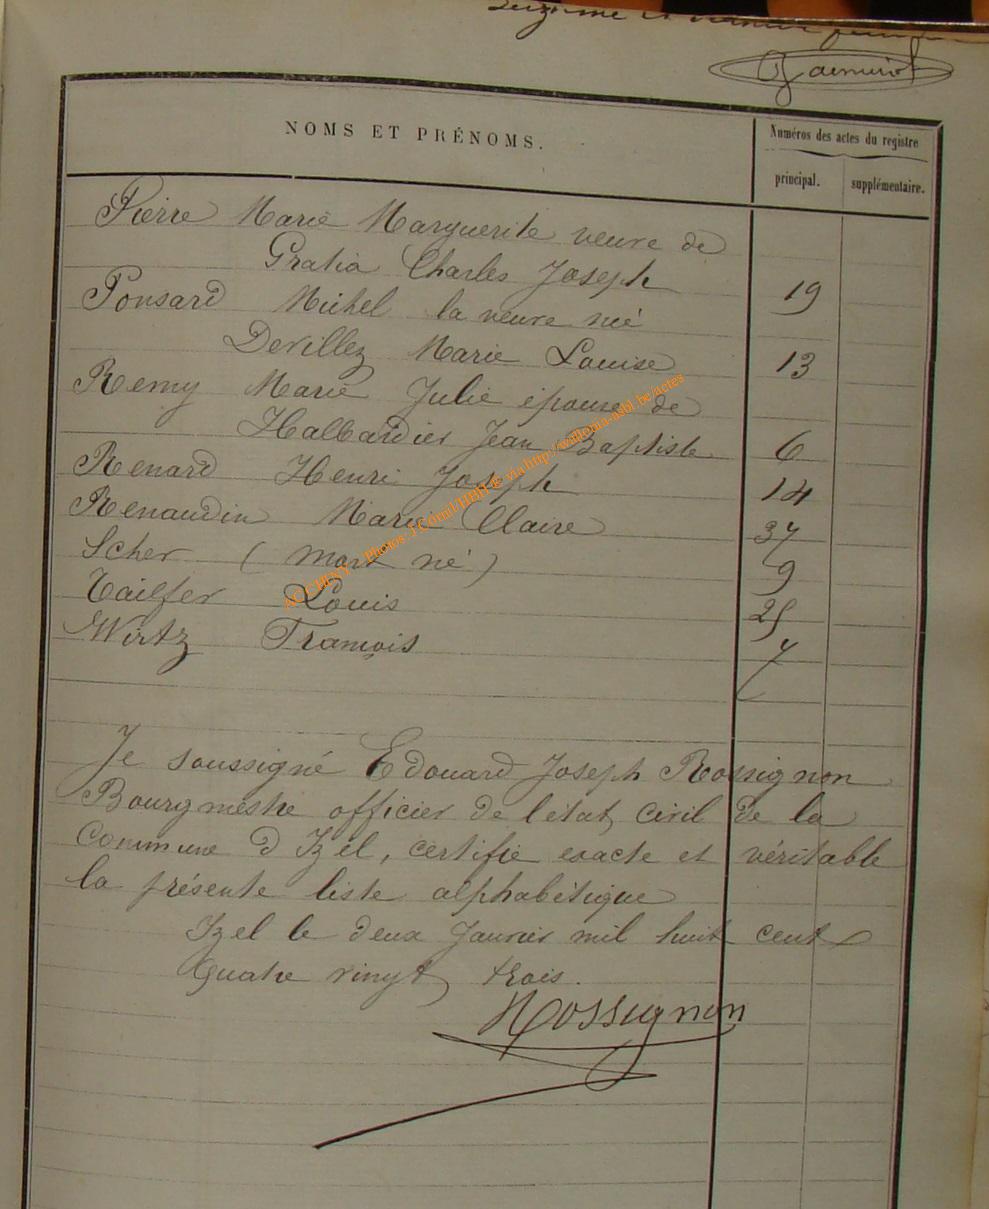 NOMS ET PRÉNOMS.
Numéros des actes du registre
principal.
supplémentaire.
Pierre Marie Marguerite veuve de
Gratia Charles Joseph 19
Ponsard Michel la veuve né
Devillez Marie Louise 13
Remy Marie Julie épouse de
Halbardier Jean Baptiste 6
Renard Henri Joseph 14
Renaudin Marie Claire 37
Scher (mort né) 9
Tailfer Louis 25
Wirtz François 7
Je soussigné Edouard Joseph Rossignon
Bourgmestre officier de l'état civil de la
Commune d Izel, certifie exacte et véritable
la présente liste alphabétique
Izel le deux Janvier mil huit cent
quatre vingt trois.
Rossignon
Photos J.Cornil HBH © via http://wallonia-asbl.be/actes